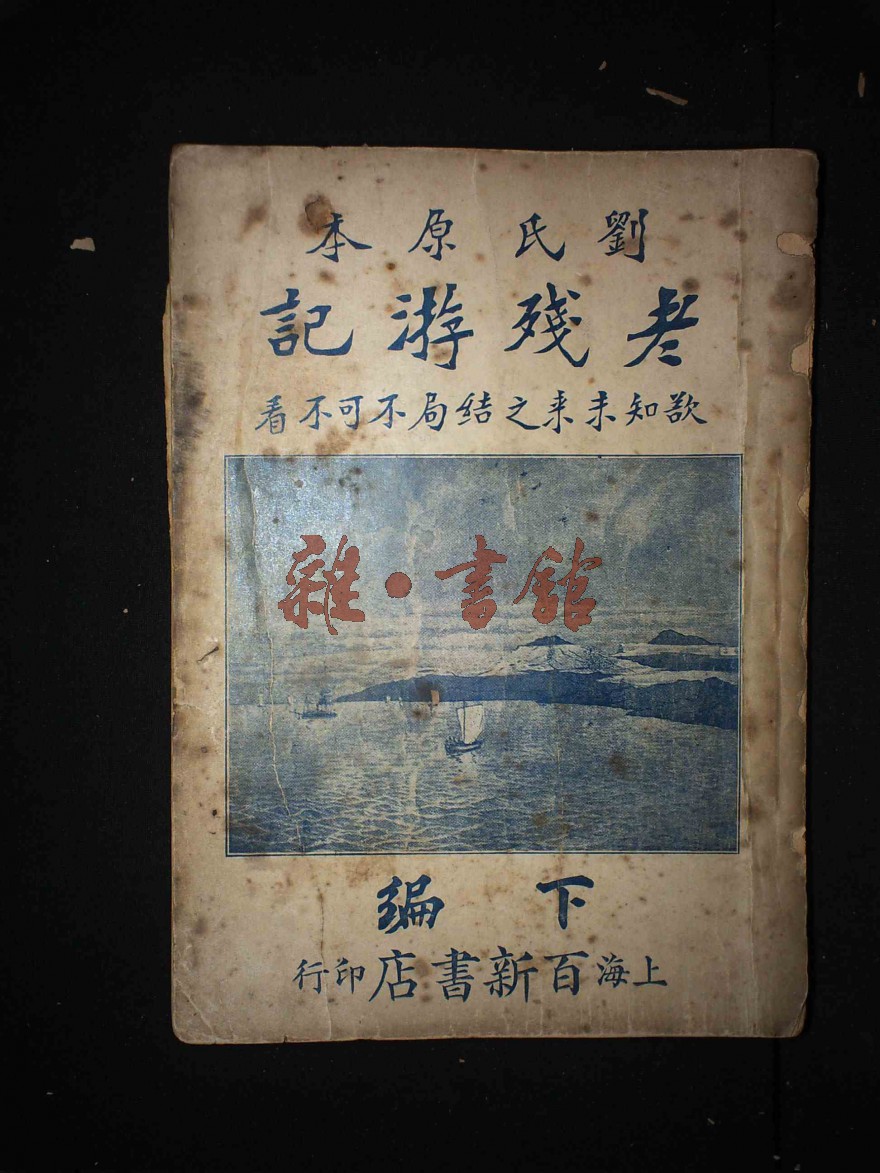 劉氏原本
老殘游記
欲知未来之结局不可不看
雜·書館
下編
上海百新書店印行